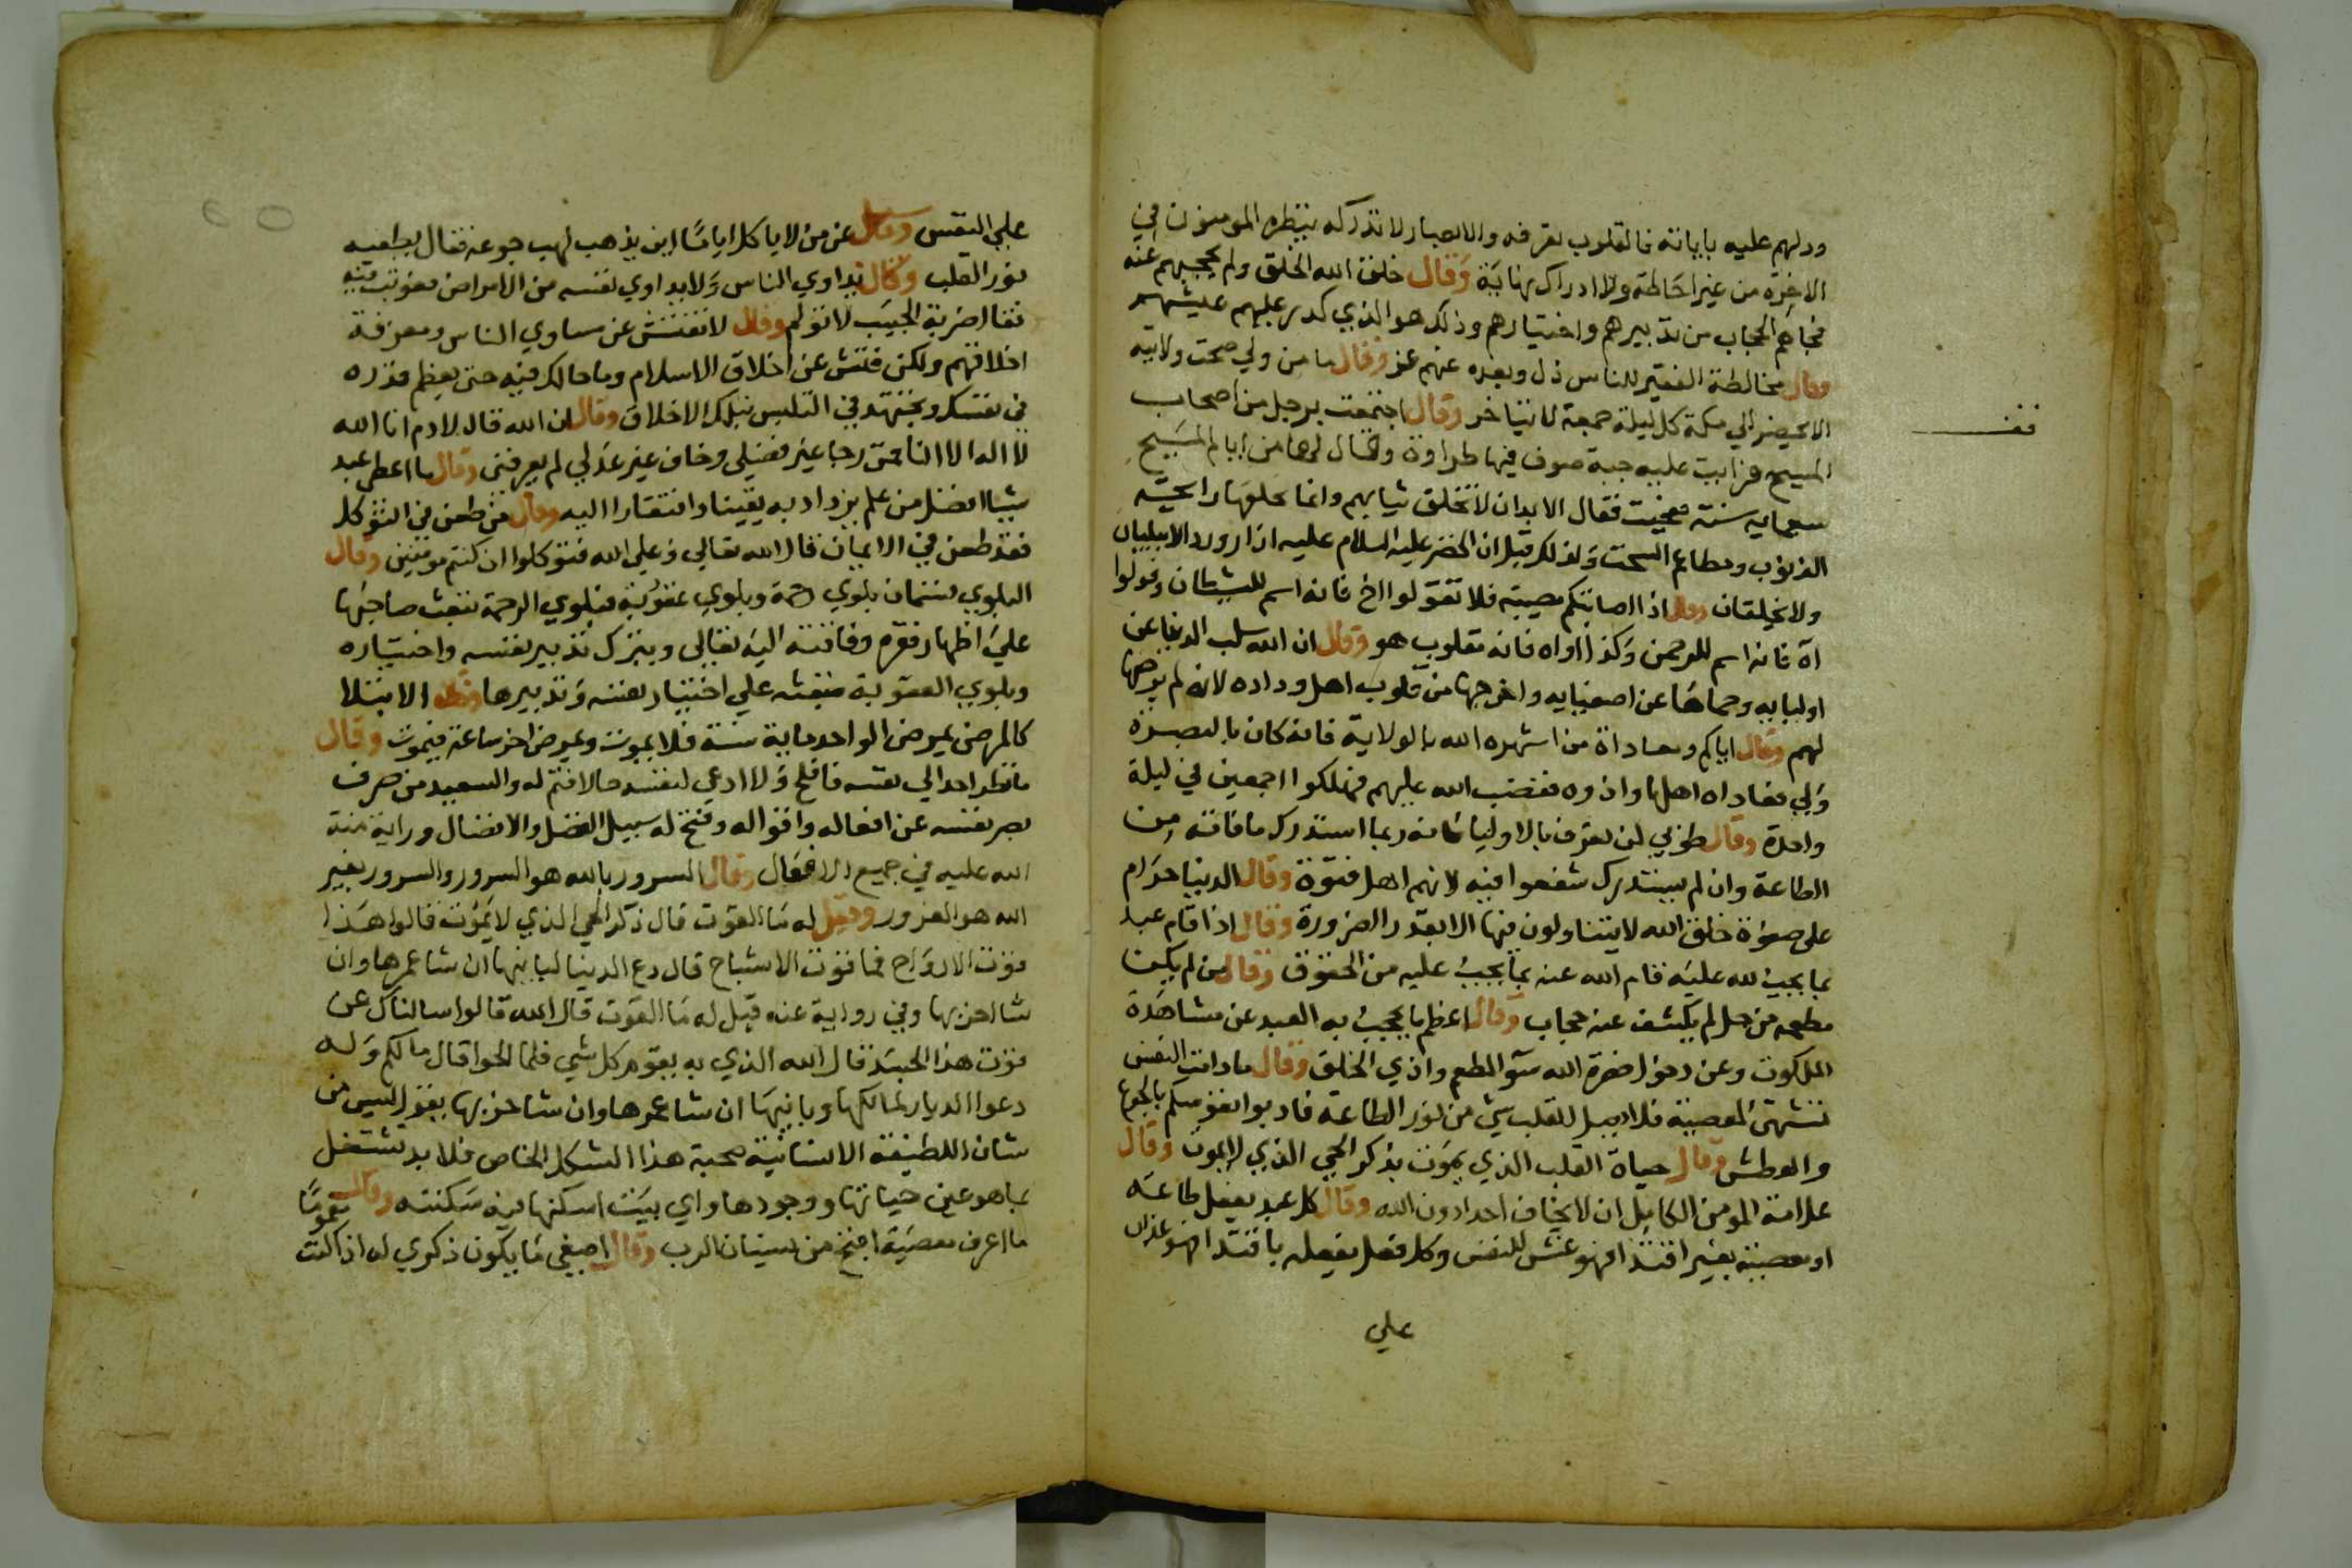 ودلهم عليه باياته فالقلوب تعرفه والابصار لا تدركه ينظره المومنون في
الاخرة من غير احاطة ولا ادراك نهاية وقال خلق الله الخلق ولم يحجبهم عنه
فجاهم الحجاب من تدبيرهم واختيارهم وذلك هو الذي كدر عليهم عيشهم
وقال مخالطة الفقير للناس ذل وبعده عنهم عز وقال ما من ولي صحت ولايته
الا يحضر الي مكة كل ليلة جمعة لا يتاخر وقال اجتمعت برجل من اصحاب
قف
المسيح فرايت عليه جبة صوف فيها طراوة وقال لي هي من ايام المسيح
سبعماية سنة فعجبت فقال الابدان لا تخلق ثيابهم وانما يخلقها رايحة
الذنوب ومطاعم السحت ولذلك قيل ان الخضر عليه السلام عليه ازار وردا لا يبليان
ولا يخلقان وقال اذا اصابتكم مصيبة فلا تقولوا اخ فانه اسم للشيطان وقولوا
اه فانه اسم للرحمن وكذا اواه فانه مقلوب هو وقال ان الله سلب الدنيا عن
اوليايه وحماها عن اصفيايه واخرجها من قلوب اهل وداده لانه لم يرضها
لهم وقال اياكم ومعاداة من اشهره الله بالولاية فانه كان بالبصرة
ولي فعاداه اهلها واذوه فغضب الله عليهم فهلكوا اجمعين في ليلة
واحدة وقال طوبي لمن تعرف بالاوليا فانه ربما استدرك ما فاته من
الطاعة وان لم يستدرك شفعوا فيه لانهم اهل فتوة وقال الدنيا حرام
على صفوة خلق الله لا يتناولون منها الا بقدر الضرورة وقال اذا قام عبد
بما يجب لله عليه قام الله عنه بما يجب عليه من الحقوق وقال من لم يكن
مطعمه من حل لم يكشف عنه حجاب وقال اعظم ما يحجب به العبد عن مشاهدة
الملكوت وعن دخول حضرة الله سو المطعم واذي الخلق وقال ما دامت النفس
تشتهي المعصية فلا يصل للقلب شي من نور الطاعة فادبوا نفوسكم بالجوع
والعطش وقال حياة القلب الذي يموت بذكر الحي الذي لا يموت وقال
علامة المومن الكامل ان لا يخاف احدا دون الله وقال كل عبد يفعل طاعة
او معصية بغير اقتدا فهو عيش للنفس وكل فعل يفعله باقتدا فهو عذاب
علي
علي النفس وسيل عن من لا ياكل اياما اين يذهب لهب جوعه فقال يطفيه
نور القلب وقال تداوي الناس ولا يداوي نفسه من الامراض فعوتب فيه
فقال ضربة الحبيب لا تولم وقال لا تفتش عن مساوي الناس ومعرفة
اخلاقهم ولكن فتش عن اخلاق الاسلام وما حالك فيه حتى يعظم قدره
في نفسك وتجتهد في التلبس بتلك الاخلاق وقال ان الله قال لادم انا الله
لا اله الا انا فمن رجا غير فضلي وخاف غير عدلي لم يعرفني وقال ما اعطي عبد
شيا افضل من علم يزداد به يقينا وافتقارا اليه وقال من طعن في التوكل
فقد طعن في الايمان قال الله تعالى وعلي الله فتوكلوا ان كنتم مومنين وقال
البلوي قسمان بلوي رحمة وبلوي عقوبة فبلوي الرحمة تبعث صاحبها
علي اظهار فقره وفاقته اليه تعالى وبترك تدبير نفسه واختياره
وبلوي العقوبة تبعثه علي اختيار نفسه وتدبيرها وقال الابتلا
كالمرض يمرض الواحد ماية سنة فلا يموت ويمرض اخر ساعة فيموت وقال
ما نظر احد الي نفسه فافلح ولا ادعي لنفسه حالا فتم له والسعيد من صرف
بصر نفسه عن افعاله واقواله وفتح له سبيل الفضل والافضال وراية منة
الله عليه في جميع الافعال وقال السرور بالله هو السرور والسرور بغير
الله هو الغرور وقيل له ما القوت قال ذكر الحي الذي لا يموت قالوا هذا
قوت الارواح فما قوت الاشباح قال دع الدنيا لبانيها ان شا عمرها وان
شا اخربها وفي رواية عنه قيل له ما القوت قال الله قالوا سالناك عن
قوت هذا الجسد قال الله الذي به يقوم كل شي فلما الحوا قال مالكم وله
دعوا الديار لمالكها وبانيها ان شا عمرها وان شا خربها يقول ليس من
شان اللطيفة الانسانية صحبة هذا الشكل الخاص فلا بد تشتغل
بما هو عين حياتها ووجودها واي بيت اسكنها فيه سكنته وقال يوما
ما اعرف معصية اقبح من نسيان الرب وقال اصغي ما يكون ذكري له اذا كنت